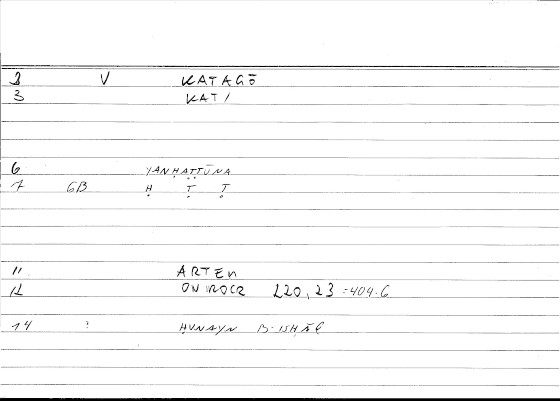 2 V KATAGŌ
3 KATI
6 YANḤAṬṬŪNA
7 GB Ḥ Ṭ Ṭ
11 ARTEM
12 ONIROCR 220,23 =404.6
14 ? ḤUNAYN B-ISḤĀQ